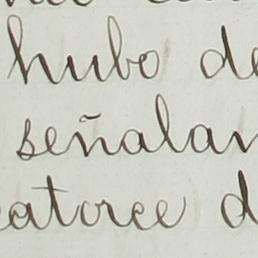 hubo de
señalar
catorce d